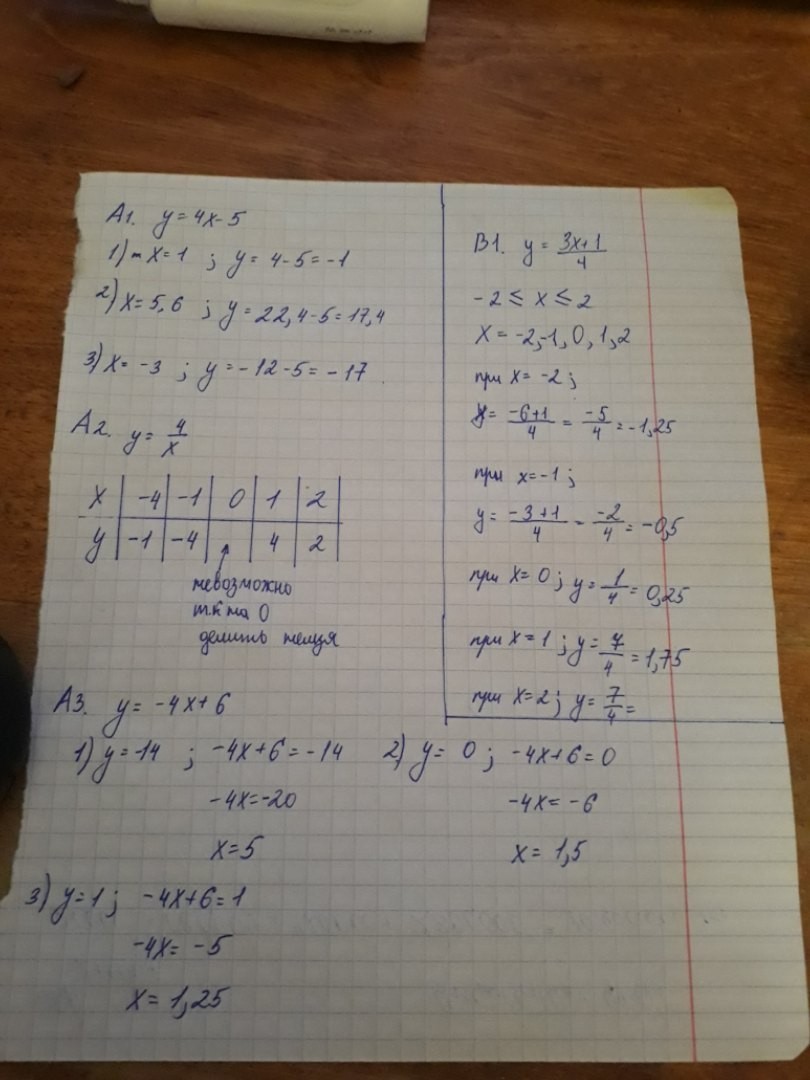 А1. y = 4x - 5
1) m x = 1 ; y = 4 - 5 = -1
2) x = 5,6 ; y = 22,4 - 5 = 17,4
3) x = -3 ; y = -12 - 5 = -17
А2. y = 4/x
x | -4 | -1 | 0 | 1 | 2
y | -1 | -4 | | 4 | 2
невозможно
т.к на 0
делить нельзя
В1. y = (3x+1)/4
-2 ≤ x ≤ 2
x = -2, -1, 0, 1, 2
при x = -2 ;
y = (-6+1)/4 = -5/4 = -1,25
при x = -1 ;
y = (-3+1)/4 = -2/4 = -0,5
при x = 0 ; y = 1/4 = 0,25
при x = 1 ; y = 7/4 = 1,75
при x = 2 ; y = 7/4 =
А3. y = -4x + 6
1) y = -14 ; -4x + 6 = -14
-4x = -20
x = 5
2) y = 0 ; -4x + 6 = 0
-4x = -6
x = 1,5
3) y = 1 ; -4x + 6 = 1
-4x = -5
x = 1,25